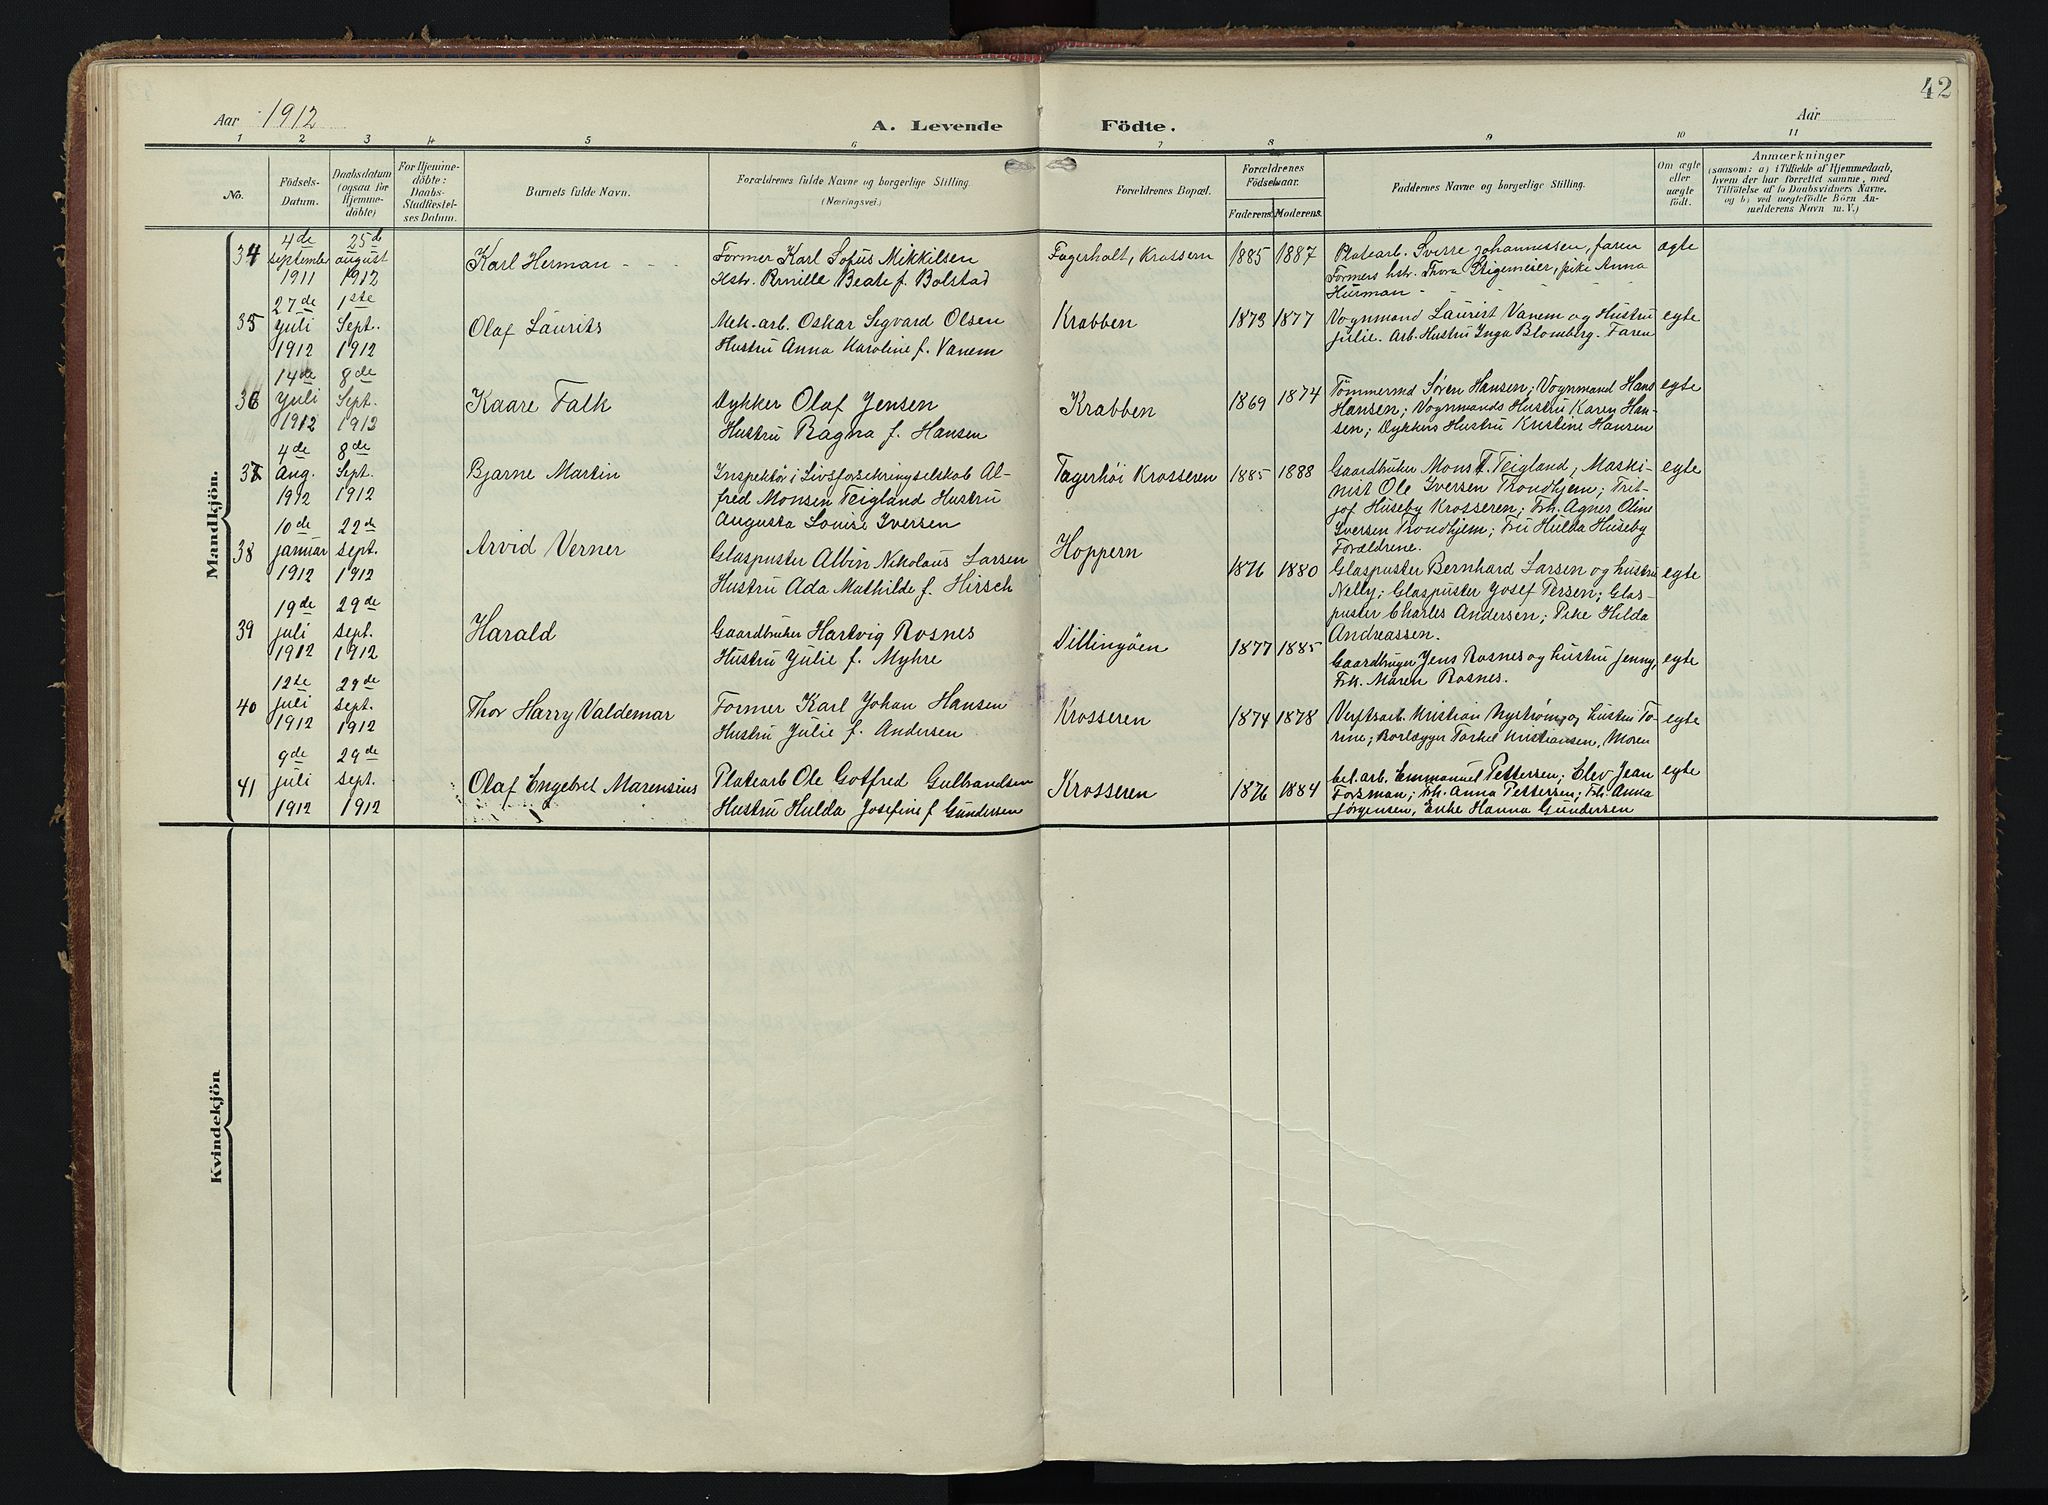 42
Aar 1912
A. Levende Födte.
Aar
1 2 3 4 5 6 7 8 9 10 11
No.
Födsels-
Datum.
Daabsdatum
(ogsaa for
Hjemme-
döbte)
For Hjemme-
döbte:
Daabs-
Stadfæstel-
ses Datum.
Barnets fulde Navn.
Forældrenes fulde Navne og borgerlige Stilling.
(Næringsvei.)
Forældrenes Bopæl.
Forældrenes
Födselsaar.
Faderens. Moderens.
Faddernes Navne og borgerlige Stilling.
Om ægte
eller
uægte
födt.
Anmærkninger
(saasom: a) i Tilfælde af Hjemmedaab,
hvem der har forrettet samme, med
Tilföielse af to Daabsvidners Navne,
og b) ved uægtefödte Börn An-
melderens Navn m. V.)
Mandkjön.
34
4de
september
1911
25de
august
1912
Karl Herman
Former Karl Sofus Mikkilsen
Hstr. Pernille Beate f. Bolstad
Fagerholt, Krossern
1885 1887
Platearb. Sverre Johannessen, faren
Formers hstr. Thora Stigemeier, pike Anna
Hurman
ægte
35
27de
juli
1912
1ste
Sept.
1912
Olaf Laurits
Mek. arb. Oskar Segvard Olsen
Hustru Anna Karoline f. Vanem
Krabben
1873 1877
Vognmand Laurist Vanem og Hustru
Julie. Arb. Hustru Inga Blomberg. Faren
egte
36
14de
Juli
1912
8de
Sept.
1912
Kaare Falk
Dykker Olaf Jensen
Hustru Ragna f. Hansen
Krabben
1869 1874
Tømmermd Søren Hansen; Vognmand Hans
Hansen; Vognmands Hustru Karen Han-
sen; Dykkers Hustru Kristine Hansen
egte
37
4de
Aug.
1912
8de
Sept.
1912
Bjarne Martin
Inspektør i Livsforsikringselskab Al-
fred Monsen Teigland Hustru
Augusta Louise Iversen
Fagerhöi Krosseren
1885 1888
Gaardbruker Mons T. Teigland; Maski-
nist Ole Iversen Trondhjem; Frit-
jof Huseby Krosseren; Frk. Agnes Oline
Iversen Trondhjem; Fru Hulda Huseby
Forældrene.
egte
38
10de
januar
1912
22de
sept.
1912
Arvid Verner
Glaspuster Albin Nikolaus Larsen
Hustru Ada Mathilde f. Hirsch
Hoppern
1876 1880
Glaspuster Bernhard Larsen og hustru
Nelly; Glaspuster Josef Persen; Glas-
puster Charles Andersen; Pike Hilda
Andreassen.
egte
39
19de
juli
1912
29de
sept.
1912
Harald
Gaardbruker Hartvig Rosnes
Hustru Julie f. Myhre
Dillingöen
1877 1885
Gaardbruger Jens Rosnes og hustru Jenny,
Frk. Maren Rosnes.
egte
40
12te
juli
1912
29de
sept.
1912
Thor Harry Valdemar
Former Karl Johan Hansen
Hustru Julie f. Andersen
Krosseren
1874 1878
Verftsarb. Kristian Nystrøm og hustru To-
rine; Borlægger Torkel Kristiansen, Moren
egte
41
9de
juli
1912
29de
sept.
1912
Olaf Engebret Marensius
Platearb Ole Gotfred Gulbrandsen
Hustru Hulda Josefine f Gundersen
Krosseren
1876 1884
Cel. arb. Emmanuel Pettersen; Elev Jean
Forsman; Frk. Anna Pettersen; Frk. Anna
Jørgensen, Enke Hanna Gundersen
egte
Kvindekjön